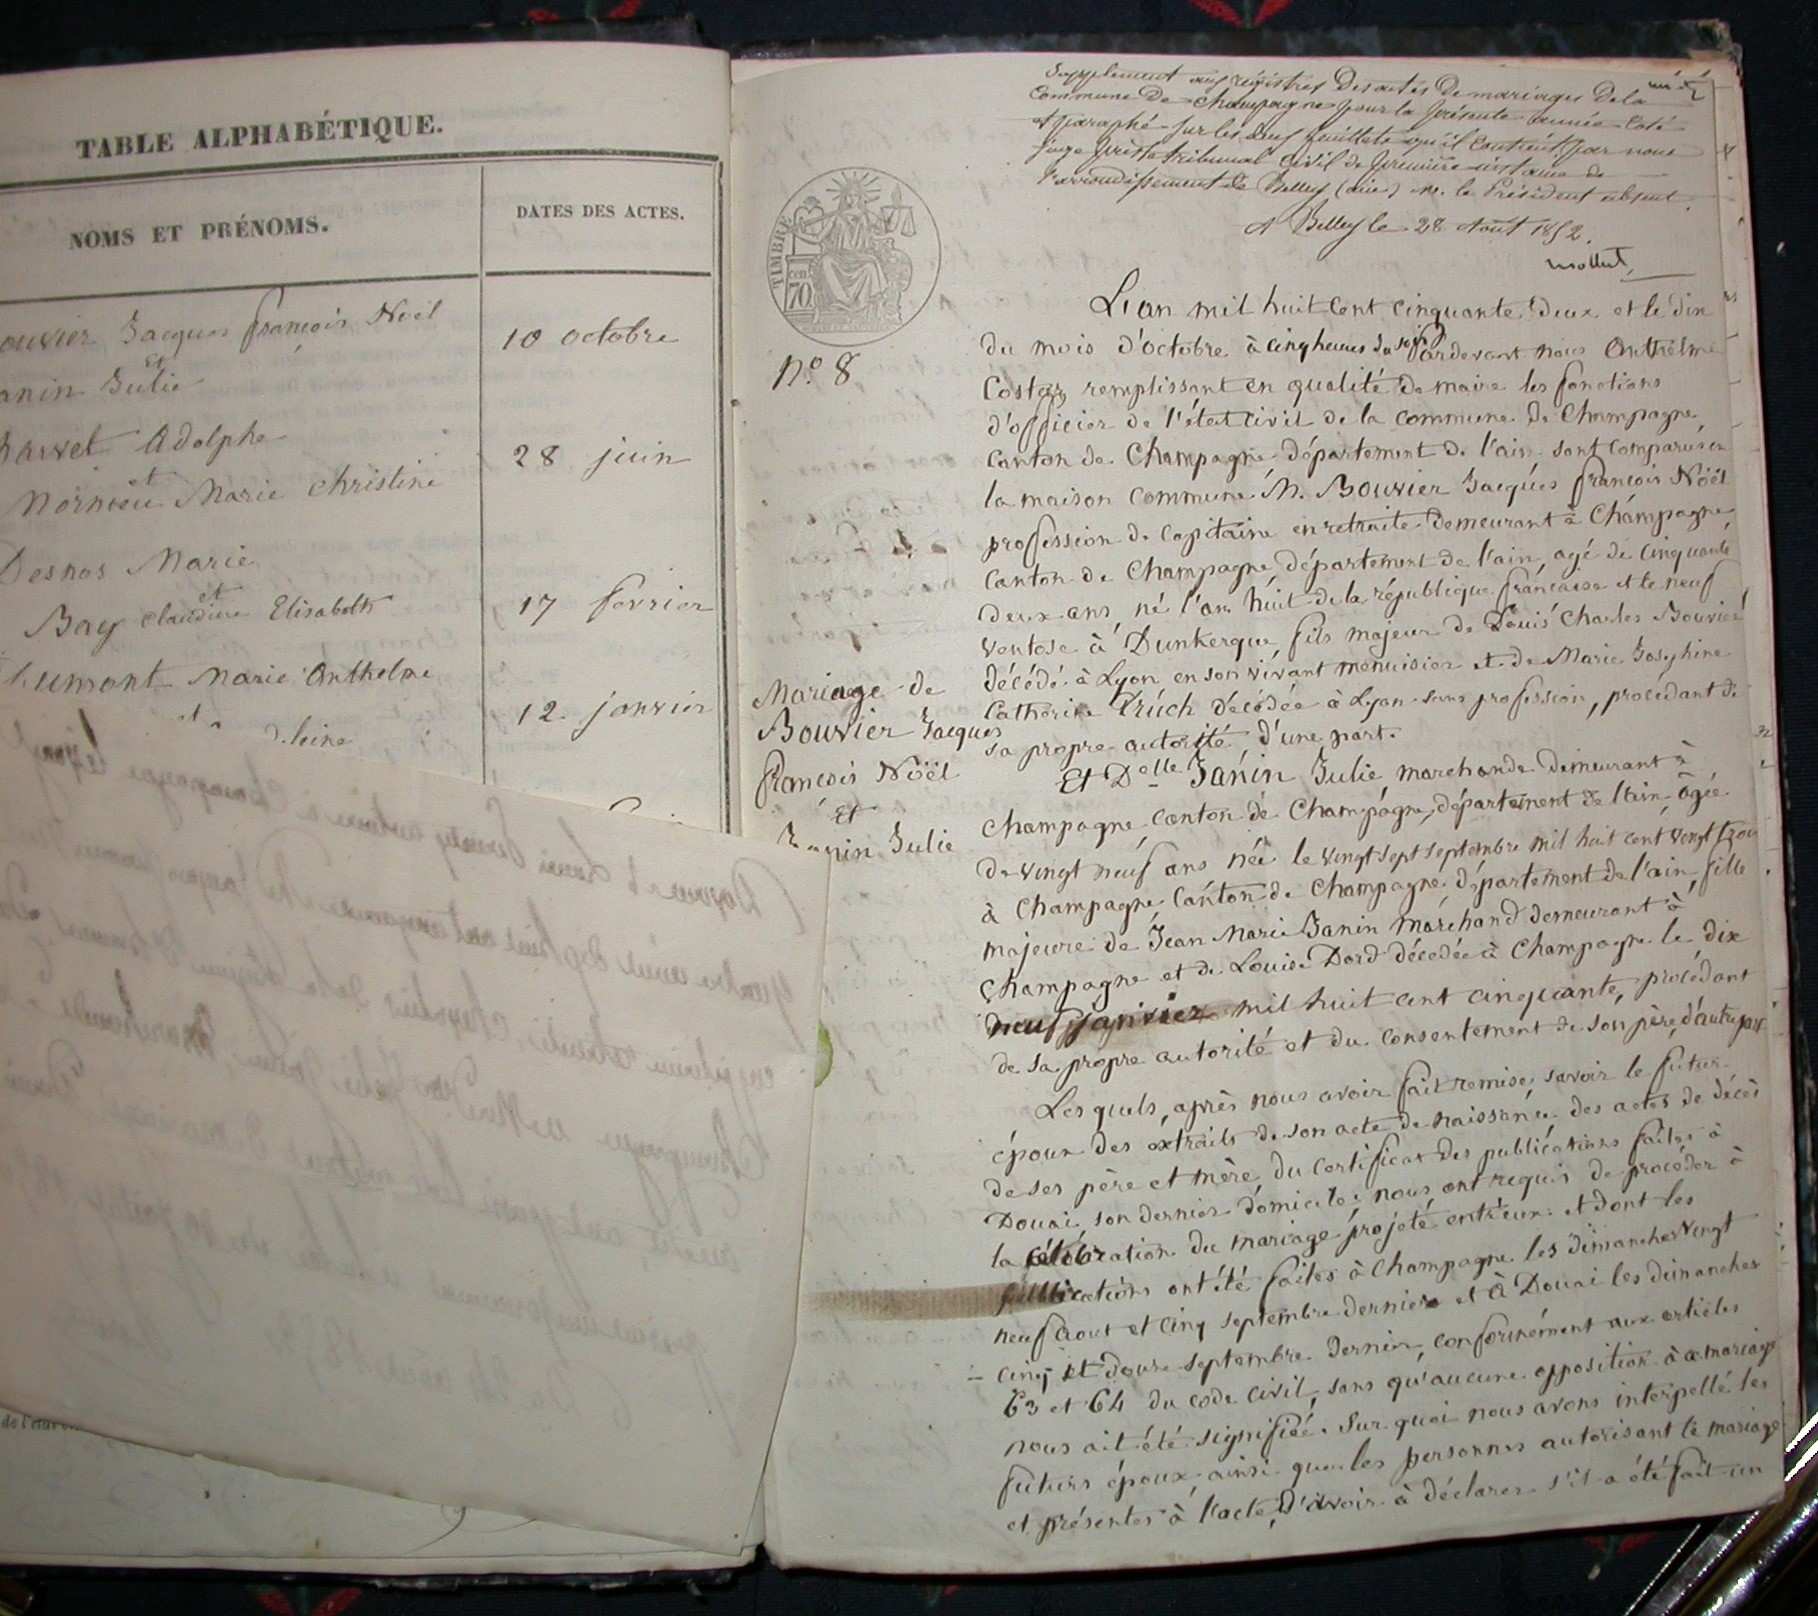 TABLE ALPHABÉTIQUE.
NOMS ET PRÉNOMS.
DATES DES ACTES.
ouvier Jacques françois Noël
et
anin Julie
10 octobre
harvet Adolphe
et
Marie Christine
28 juin
Desnos Marie
et
Bay claudine Elisabeth
17 fevrier
umont Marie Anthelme
12 janvier
Supplement aux régistres des actes de mariages de la
Commune de Champagne pour la présente année Coté
et paraphé sur les deux feuillets qu'il contient par nous
juge près le tribunal civil de première instance de
l'arrondissement de Belley (ain) M. le Président absent.
A Belley le 28 Août 1852.
TIMBRE
cen
70
No 8
L'an mil huit cent cinquante deux et le dix
du mois d'octobre à cinq heures du soir pardevant nous Anthelme
Costaz remplissant en qualité de maire les fonctions
d'officier de l'état civil de la commune de Champagne,
canton de Champagne, département de l'ain sont comparus en
la maison commune M. Bouvier Jacques françois Noël
profession de capitaine en retraite demeurant à Champagne,
canton de Champagne, département de l'ain, agé de cinquante
deux ans, né l'an huit de la république francaise et le neuf
ventose à Dunkerque, fils majeur de Louis Charles Bouvier
décédé à Lyon en son vivant menuisier et de Marie Josephine
Catherine décédée à Lyon sans profession, procédant de
sa propre autorité, d'une part.
Mariage de
Bouvier Jacques
françois Noël
et
Janin Julie
Et Delle Janin Julie marchande demeurant à
Champagne, canton de Champagne, département de l'ain, âgée
de vingt neuf ans née le vingt sept septembre mil huit cent vingt trois
à Champagne, canton de Champagne, département de l'ain, fille
majeure de Jean Marie Janin marchand demeurant à
Champagne et de Louise Dord décédée à Champagne le dix
neuf janvier mil huit cent cinquante, procédant
de sa propre autorité et du consentement de son père, d'autre part
Les quels, après nous avoir fait remise, savoir le futur
époux des extraits de son acte de naissance, des actes de décès
de ses père et mère, du certificat des publications faites à
Douai, son dernier domicile; nous ont requis de procéder à
la célébration du mariage projeté entr'eux et dont les
publications ont été faites à Champagne les dimanches vingt
neuf aout et cinq septembre dernier et à Douai les dimanches
cinq et douze septembre dernier, conformément aux articles
63 et 64 du code civil, sans qu'aucune opposition à ce mariage
nous ait été signifiée. Sur quoi nous avons interpellé les
futurs époux, ainsi que les personnes autorisant le mariage
et présentes à l'acte, d'avoir à déclarer s'il a été fait un